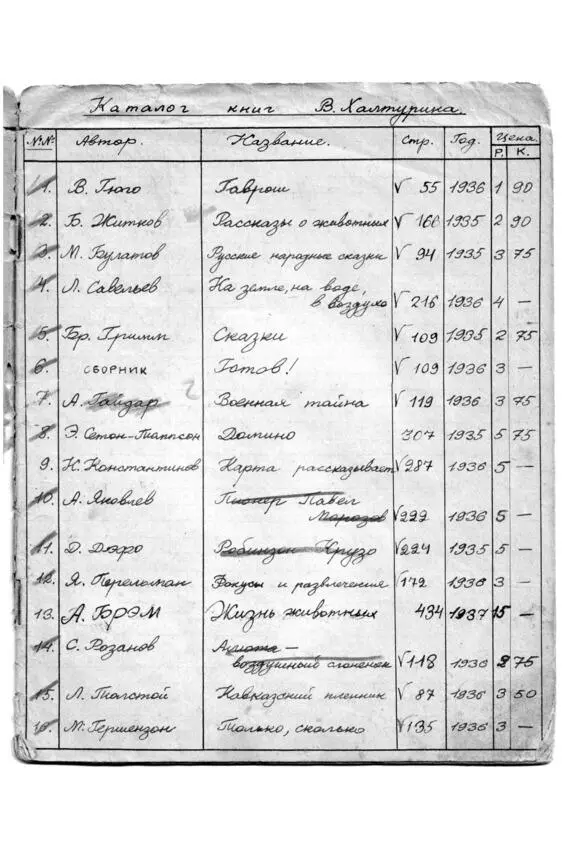 Каталог книг В. Халтурина.
№№ Автор. Название. Стр. Год. Цена.
Р. К.
1. В. Гюго Гаврош V 55 1936 1 90
2. Б. Житков Рассказы о животных V 166 1935 2 90
3. М. Булатов Русские народные сказки V 94 1935 3 75
4. Л. Савельев На земле, на воде,
в воздухе V 216 1936 4 —
5. Бр. Гримм Сказки V 109 1935 2 75
6. СБОРНИК Готов! V 109 1936 3 —
7. А. Гайдар Военная тайна V 119 1936 3 75
8. Э. Сетон-Томпсон Домино 307 1935 5 75
9. Н. Константинов Карта рассказывает V 287 1936 5 —
10. А. Яковлев Пионер Павел
Морозов V 222 1936 5 —
11. Д. Дэфо Робинзон Крузо V 224 1935 5 —
12. Я. Перельман Фокусы и развлечения V 172 1936 3 —
13. А. БРЭМ Жизнь животных 434 1937 15 —
14. С. Розанов
воздушный слоненок V 118 1936 2 75
15. Л. Толстой Кавказский пленник V 87 1936 3 50
16. М. Гершензон Только, сколько V 135 1936 3 —